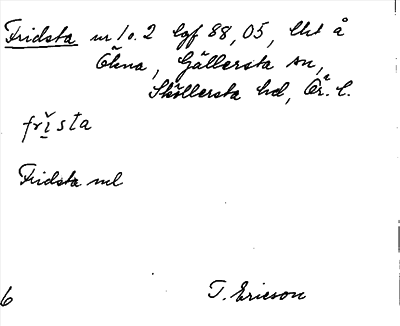 Fridsta nr 1 o. 2 lgf 88, 05, lht å
Ökna, Gällersta sn,
Sköllersta hd, Ör. l.
frista
Fridsta ml
6
T. Ericson